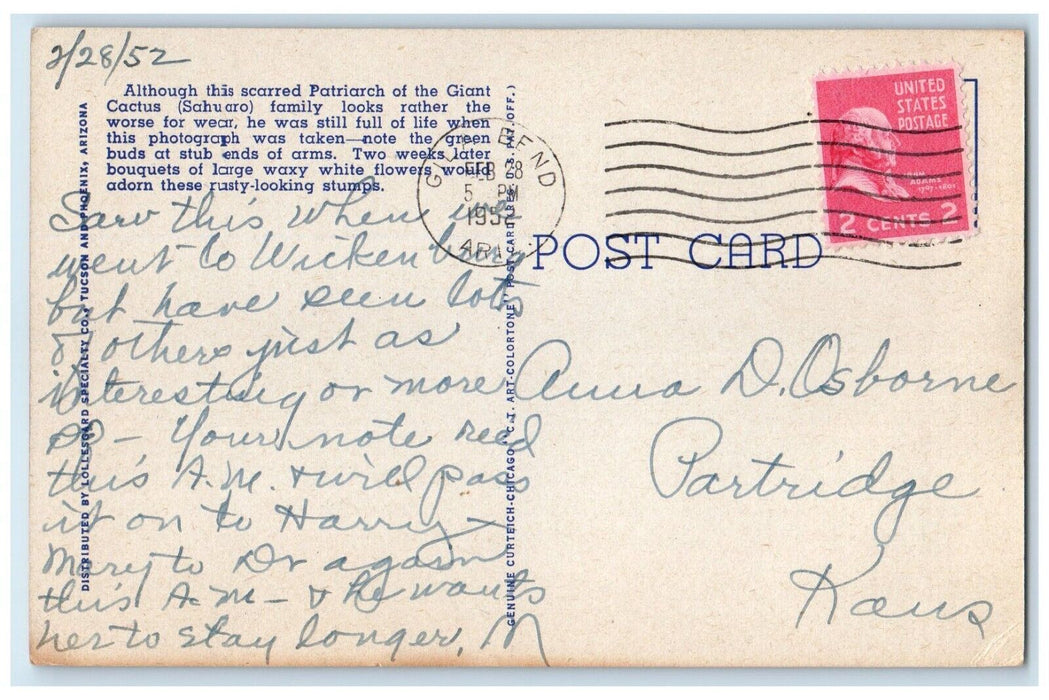 2/28/52
Although this scarred Patriarch of the Giant
Cactus (Sahuaro) family looks rather the
worse for wear, he was still full of life when
this photograph was taken—note the green
buds at stub ends of arms. Two weeks later
bouquets of large waxy white flowers would
adorn these rusty-looking stumps.
Saw this when we
went to Wickenburg
but have seen lots
of others just as
interesting or more
so – Your note recd
this A.M. & will pass
it on to Harry –
Mary to Dr again
this A.M – & he wants
her to stay longer, M
DISTRIBUTED BY LOLLESGARD SPECIALTY CO., TUCSON AND PHOENIX, ARIZONA
GENUINE CURTEICH-CHICAGO "C.T. ART-COLORTONE" POST CARD (REG. U.S. PAT. OFF.)
GILA BEND
FEB 28
5 PM
1952
ARIZ.
POST CARD
UNITED
STATES
POSTAGE
JOHN
ADAMS
1797-1801
2 CENTS 2
Anna D. Osborne
Partridge
Kans